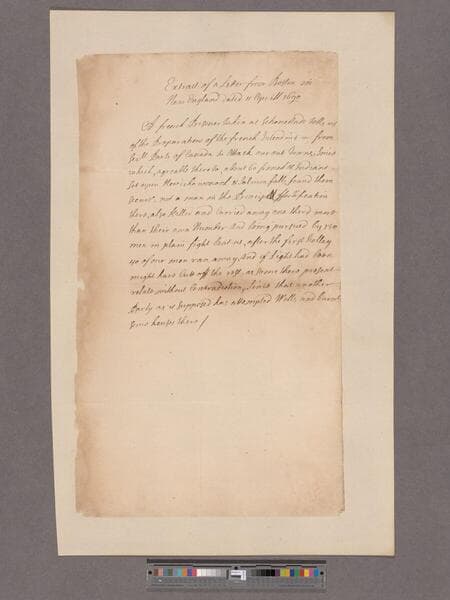 Extract of a Letter from Boston in
New England dated 11 Aprill 1690
A french Prisoner taken at Schonectade tells us
of the Preparation of the french Intending in from
Parts of Canada to Attack our out Towns, Since
which, agreable thereto, about 60 french & Indians
Set upon & Salmon falls, found them
secure, not a man in the Principall ffortification
there, also Killed and Carried away one third more
than their own Number And being pursued by 140
men in plain fight beat us, after the first Volley
40 of our men ran away, And if Light had been
might have Cutt off the rest, as Some there present
relate without Contradiction, Since that another
Party as is Supposed has attempted Wells and burnt
some houses there /